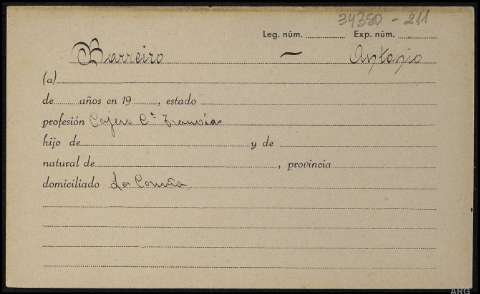 34350 - 211
Leg. núm. Exp. núm.
Barreiro — Antonio
(a)
de años en 19 , estado
profesión Cajero C.ª Tranvía
hijo de y de
natural de , provincia
domiciliado La Coruña
ARG